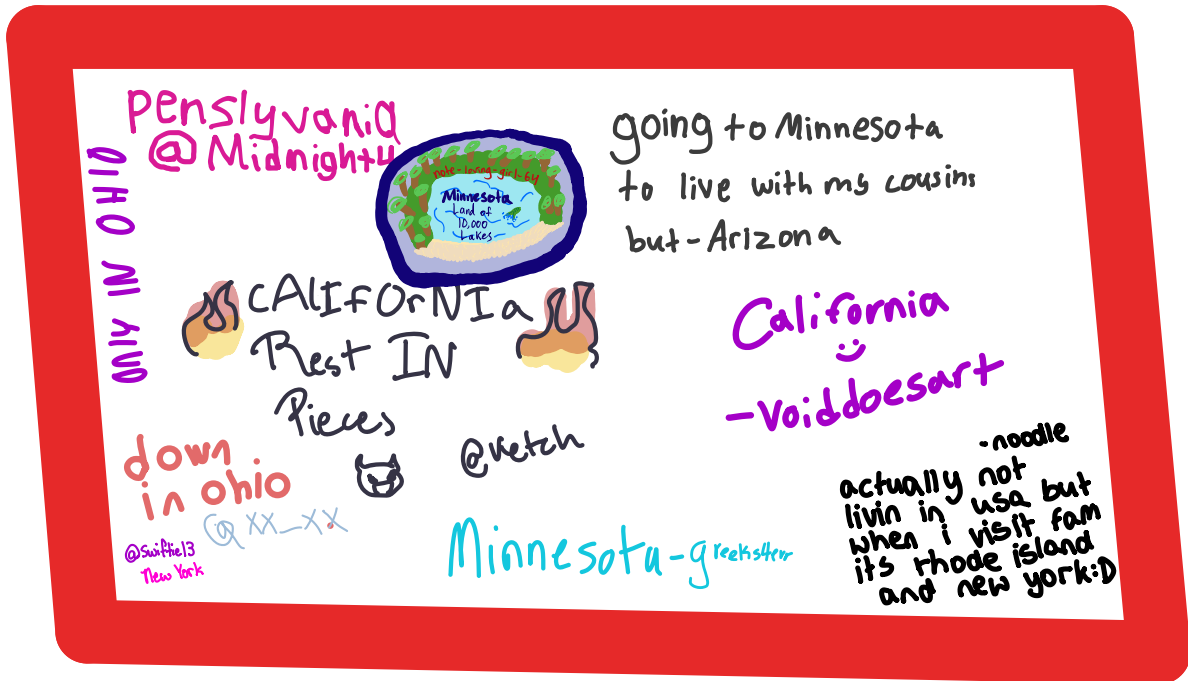 penslyvania
@Midnight4
ONLY IN OHIO
note-loving-girl-64
Minnesota
Land of
10,000
Lakes
going to Minnesota
to live with my cousins
but-Arizona
CAlIfOrNIa
Rest IN
Pieces
@vetch
California
-Voiddoesart
down
in ohio
@xx_xx
@swiftie13
New York
Minnesota-greeks4evr
-noodle
actually not
livin in usa but
when i visit fam
its rhode island
and new york:D